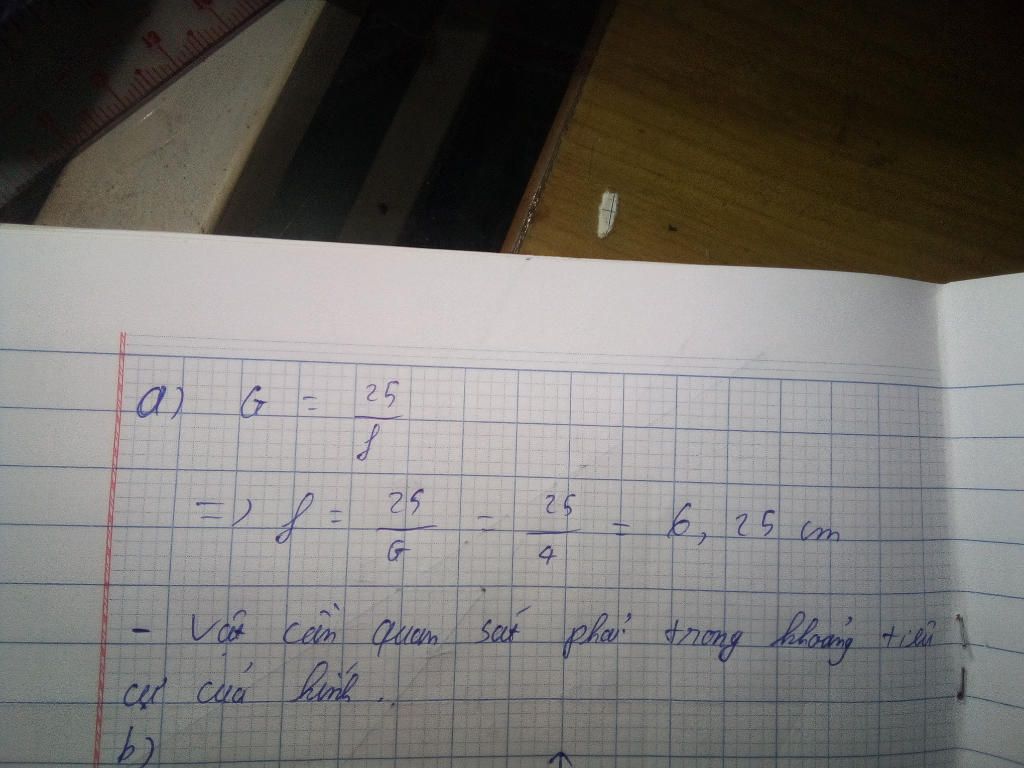 a) G = 25/f
=> f = 25/G = 25/4 = 6,25 cm
- Vật cần quan sát phải trong khoảng tiêu
cự của kính.
b)